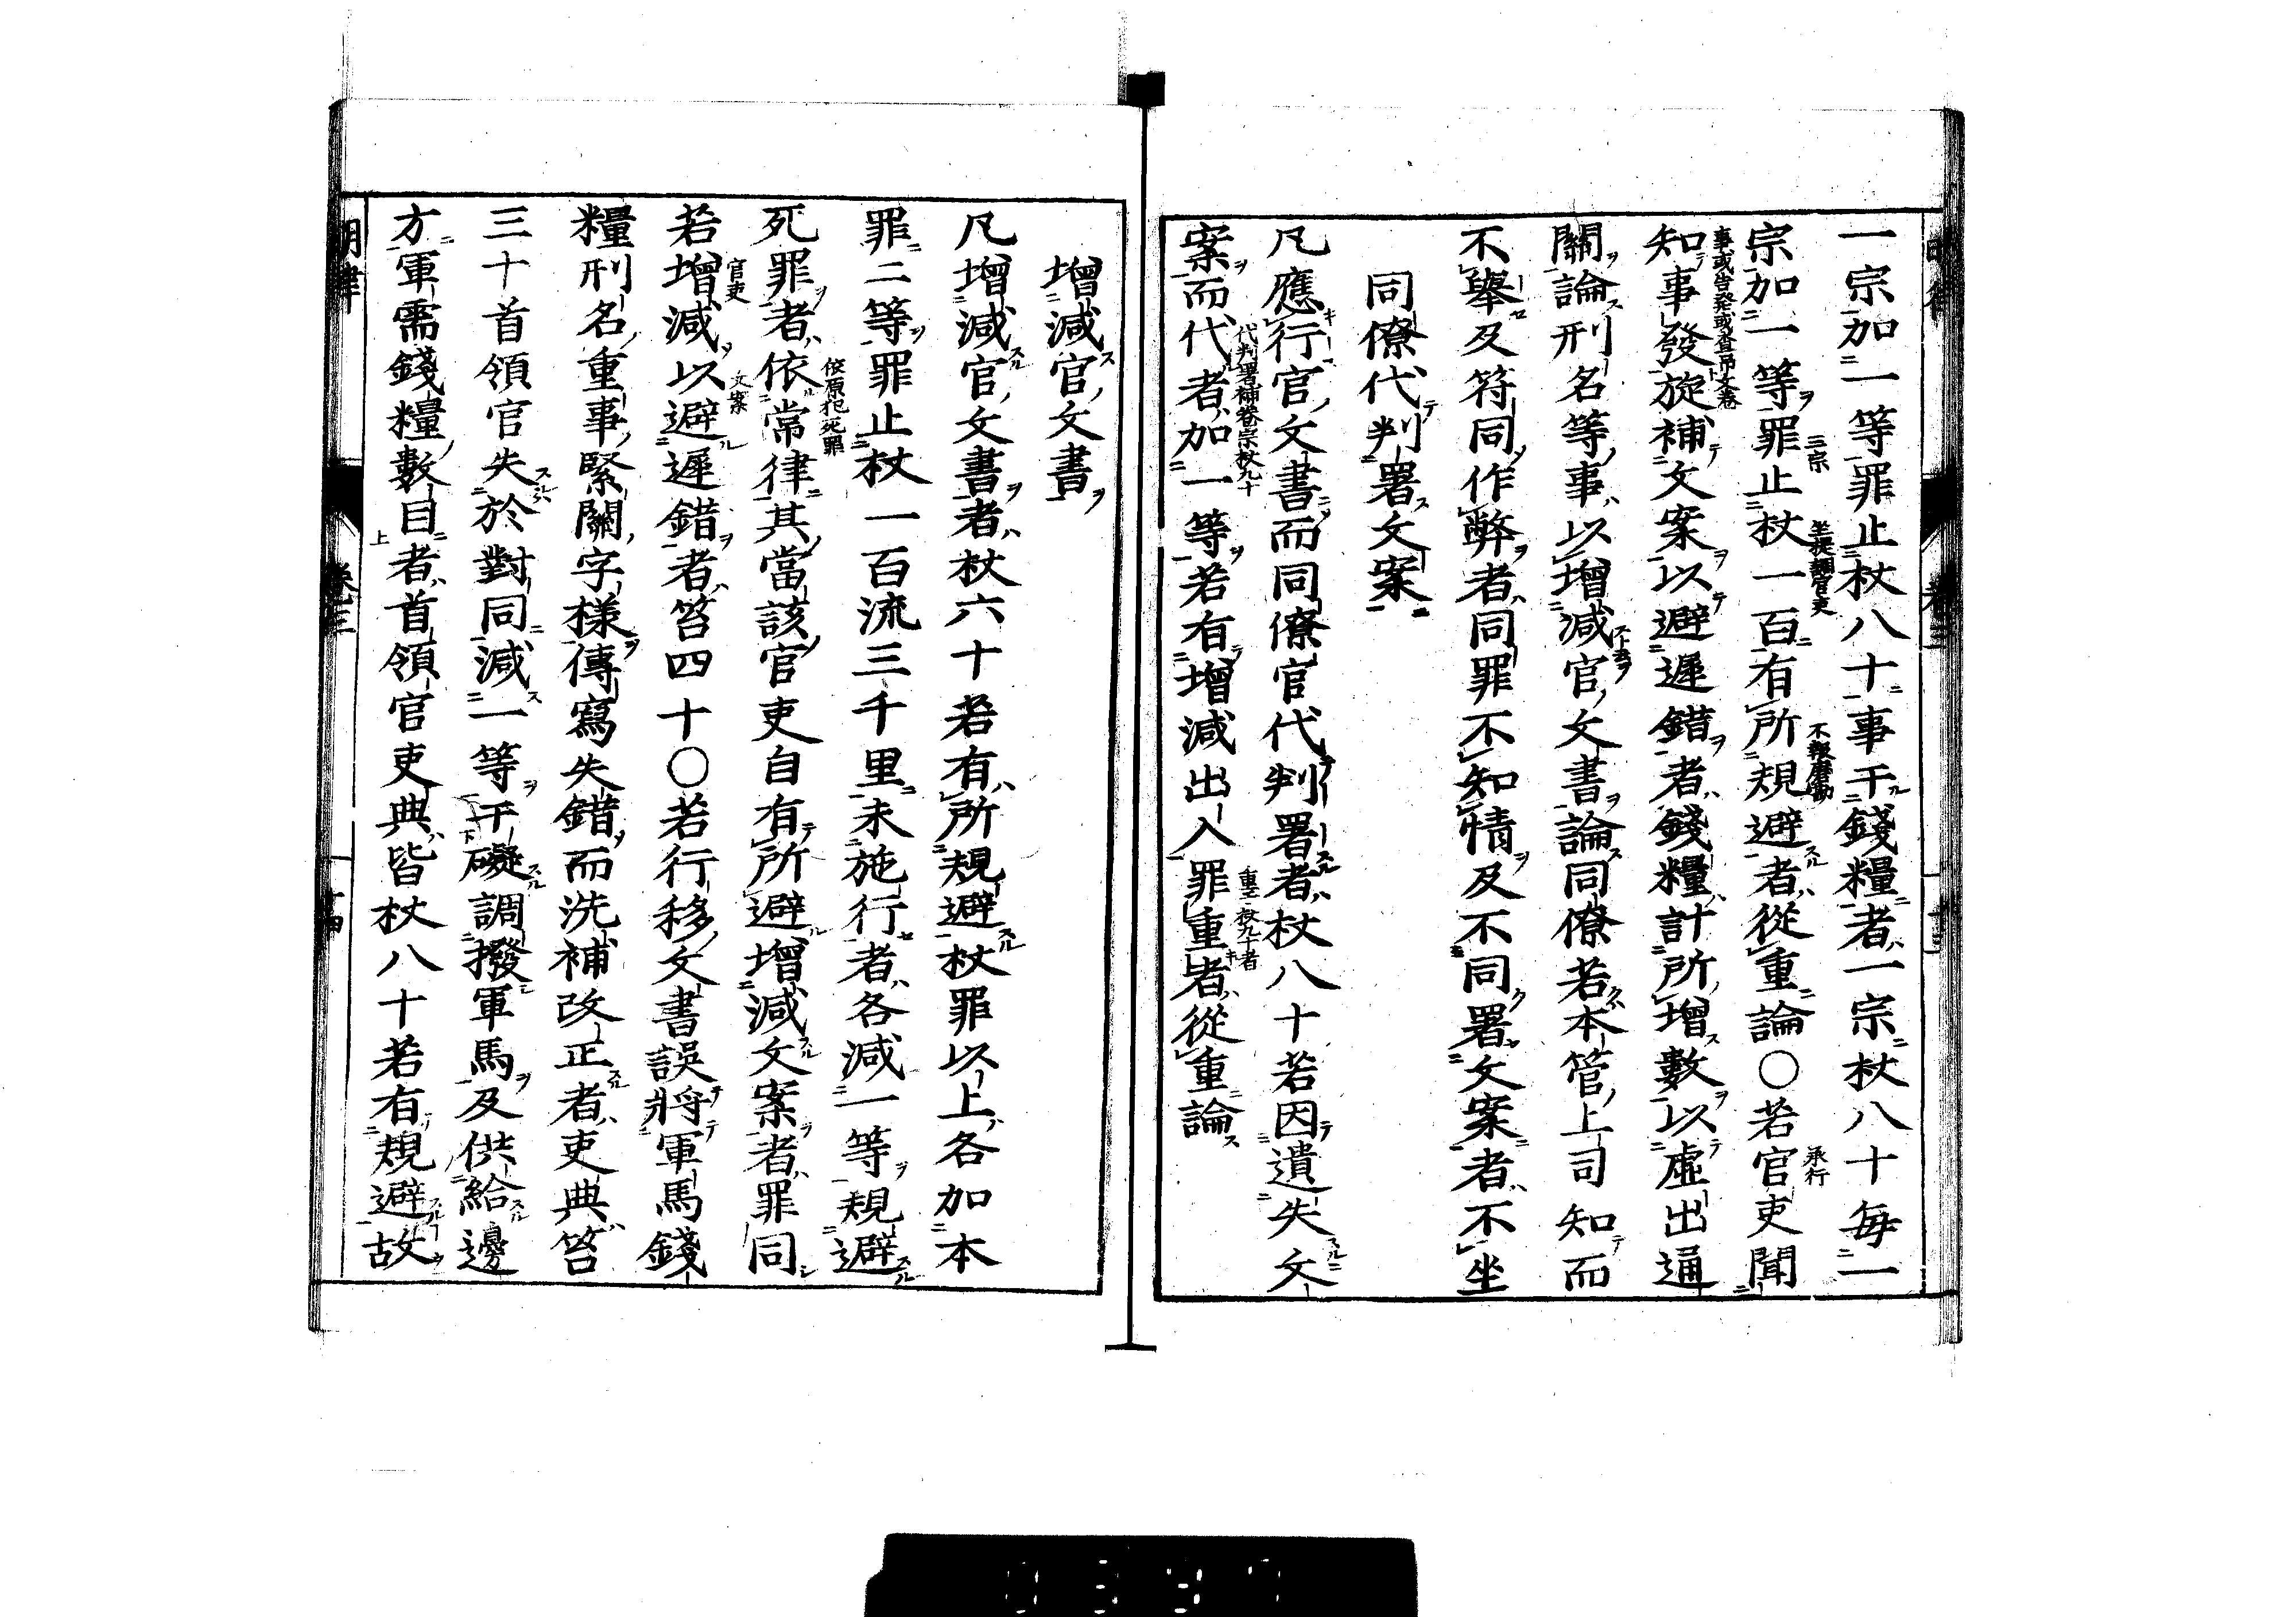 一宗加一等罪止杖八十事干錢糧者一宗杖八十每一
宗加一等罪止杖一百有所規避者從重論〇若官吏聞
知事發旋補文案以避遲錯者錢糧計所增數以虛出通
關論刑名等事以增減官文書論同僚若本管上司知而
不舉及符同作弊者同罪不知情及不同署文案者不坐
同僚代判署文案
凡應行官文書而同僚官代判署者杖八十若因遺失文
案而代者加一等若有增減出入罪重者從重論
增減官文書
凡增減官文書者杖六十若有所規避杖罪以上各加本
罪二等罪止杖一百流三千里未施行者各減一等規避
死罪者依常律其當該官吏自有所避增減文案者罪同
若增減以避遲錯者笞四十〇若行移文書誤將軍馬錢
糧刑名重事緊關字樣傳寫失錯而洗補改正者吏典笞
三十首領官失於對同減一等干礙調撥軍馬及供給邊
方軍需錢糧數目者首領官吏典皆杖八十若有規避故